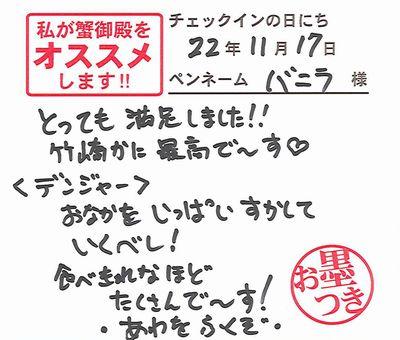 私が蟹御殿を
オススメ
します!!
チェックインの日にち
22年11月17日
ペンネーム バニラ 様
とっても 満足しました!!
竹崎かに 最高で〜す♡
<デンジャー>
おなかを いっぱい すかして
いくべし!
食べきれなほど
たくさんで〜す!
・あわを ふくぞ・
お墨つき